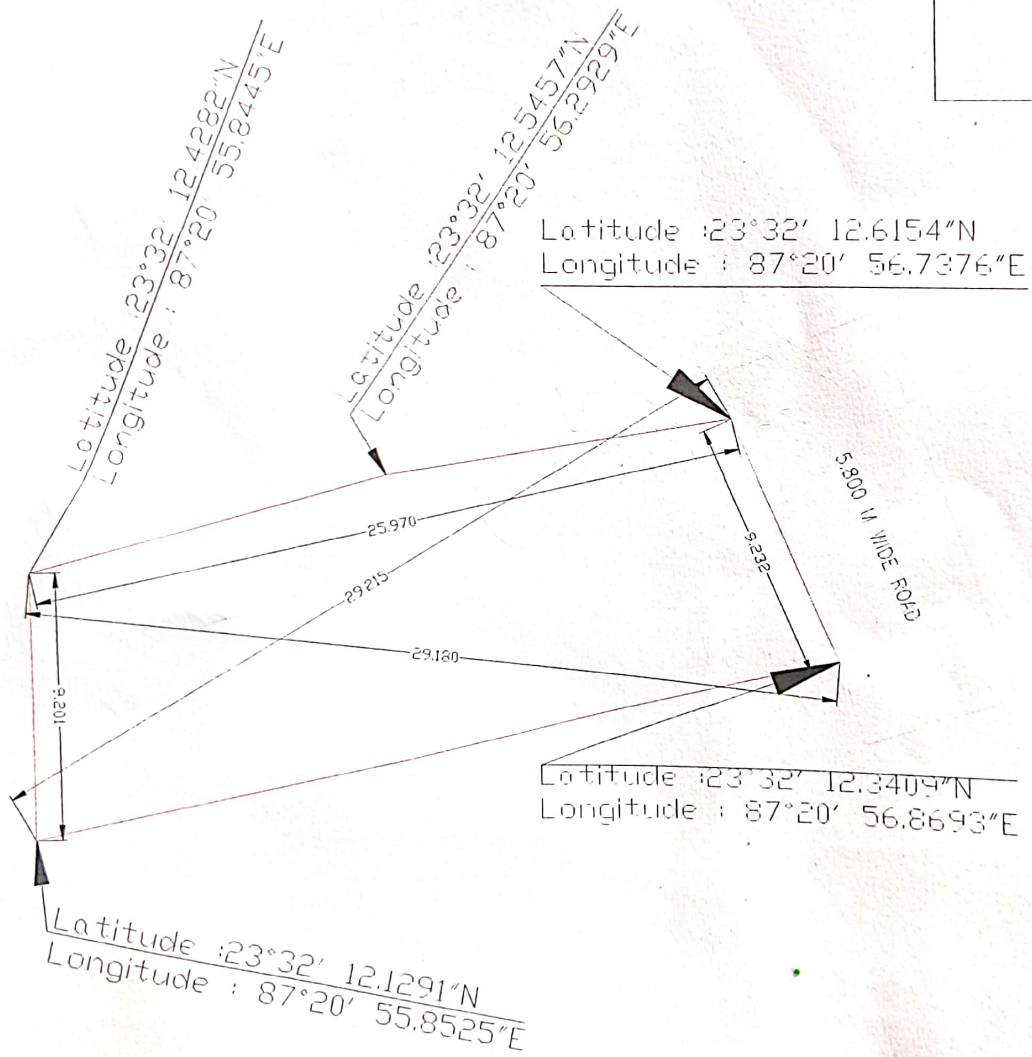 Latitude :23°32' 12.4282"N
Longitude : 87°20' 55.8445"E
Latitude :23°32' 12.5457"N
Longitude : 87°20' 56.2929"E
Latitude :23°32' 12.6154"N
Longitude : 87°20' 56.7376"E
5.800 M WIDE ROAD
25.970
9.232
29.215
29.180
9.201
Latitude :23°32' 12.3409"N
Longitude : 87°20' 56.8693"E
Latitude :23°32' 12.1291"N
Longitude : 87°20' 55.8525"E